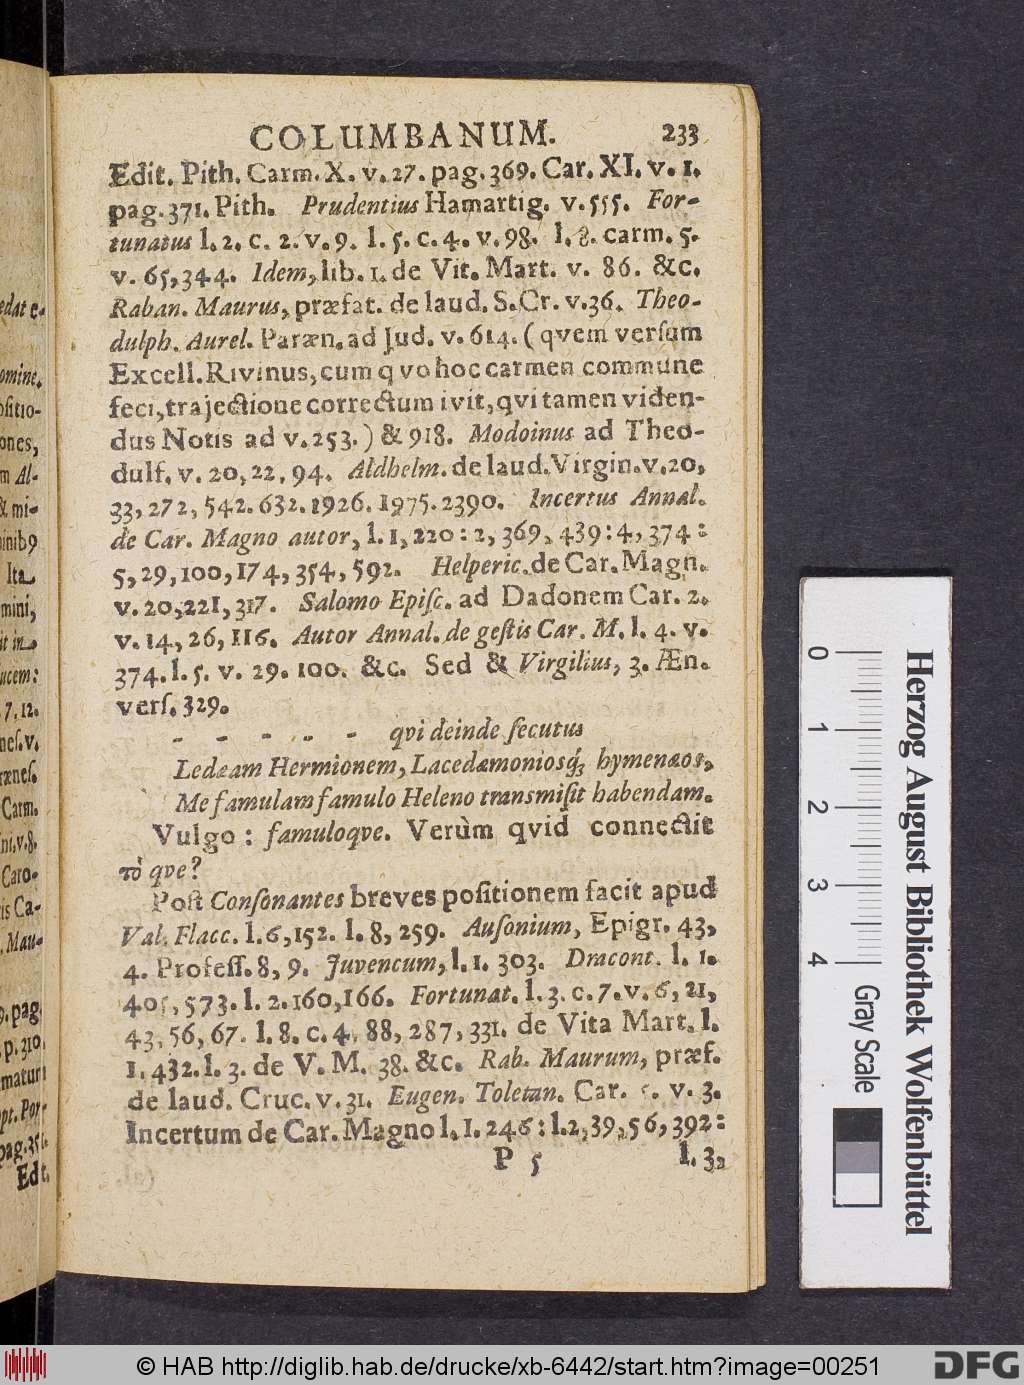 COLUMBANUM. 233
Edit. Pith. Carm. X. v. 27. pag. 369. Car. XI. v. 1.
pag. 371. Pith. Prudentius Hamartig. v. 555. For-
tunatus l. 2. c. 2. v. 9. l. 5. c. 4. v. 98. l. 8. carm. 5.
v. 65, 344. Idem, lib. 1. de Vit. Mart. v. 86. &c.
Raban. Maurus, præfat. de laud. S. Cr. v. 36. Theo-
dulph. Aurel. Paræn. ad Jud. v. 614. (qvem versum
Excell. Rivinus, cum qvo hoc carmen commune
feci, trajectione correctum ivit, qvi tamen viden-
dus Notis ad v. 253.) & 918. Modoinus ad Theo-
dulf. v. 20, 22, 94. Aldhelm. de laud. Virgin. v. 20,
33, 272, 542. 632. 1926. 1975. 2390. Incertus Annal.
de Car. Magno autor, l. 1, 220: 2, 369, 439: 4, 374:
5, 29, 100, 174, 354, 592. Helperic. de Car. Magn.
v. 20, 221, 317. Salomo Episc. ad Dadonem Car. 2.
v. 14, 26, 116. Autor Annal. de gestis Car. M. l. 4. v.
374. l. 5. v. 29. 100. &c. Sed & Virgilius, 3. Æn.
vers. 329.
- - - - - qvi deinde secutus
Ledæam Hermionem, Lacedæmoniosq́; hymenæos,
Me famulam famulo Heleno transmisit habendam.
Vulgo: famuloqve. Verùm qvid connectit
τὸ qve?
Post Consonantes breves positionem facit apud
Val. Flacc. l. 6, 152. l. 8, 259. Ausonium, Epigr. 43,
4. Profess. 8, 9. Juvencum, l. 1. 303. Dracont. l. 1.
405, 573. l. 2. 160, 166. Fortunat. l. 3. c. 7. v. 6, 21,
43, 56, 67. l. 8. c. 4. 88, 287, 331. de Vita Mart. l.
1. 432. l. 3. de V. M. 38. &c. Rab. Maurum, præf.
de laud. Cruc. v. 31. Eugen. Toletan. Car. v. 3.
Incertum de Car. Magno l. 1. 246: l. 2, 39, 56, 392:
P 5 l. 3,
edat e-
omine.
ositio-
ones,
m Al-
& mi-
Ita
mini,
it in
ucem:
7, 12.
nes. v.
rænes.
Carm.
ni. v. 8.
Caro-
is Ca-
. Mau-
9. pag.
p. 310.
matur
pt. Por-
pag. 351.
Edit.
0 1 2 3 4
Gray Scale
Herzog August Bibliothek Wolfenbüttel
© HAB http://diglib.hab.de/drucke/xb-6442/start.htm?image=00251
DFG